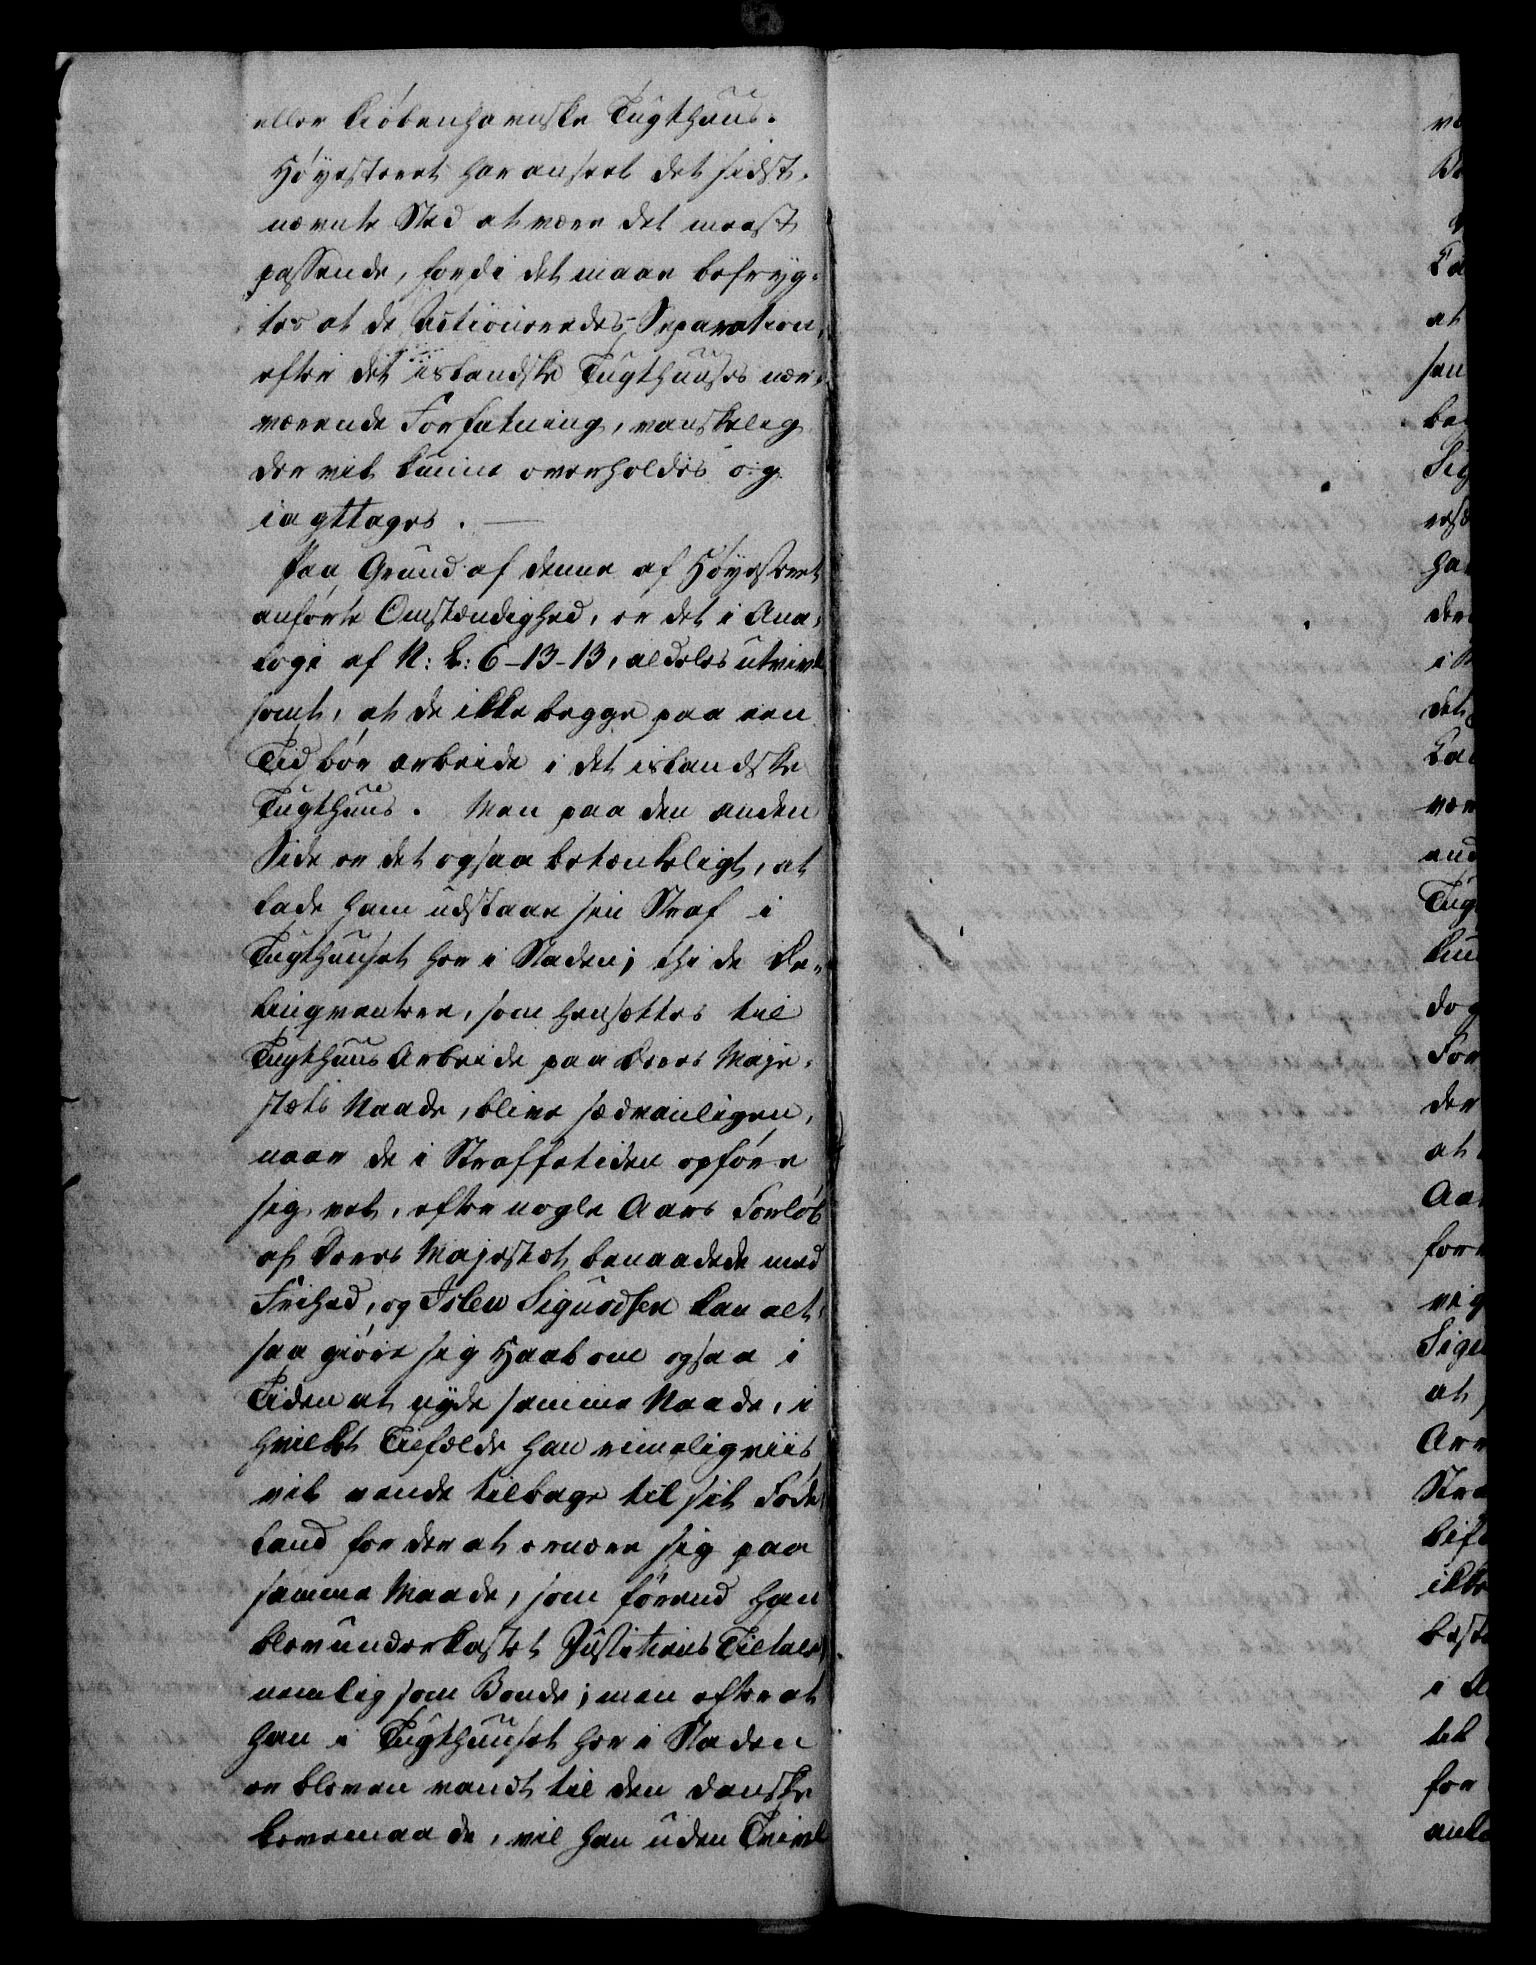 eller kiöbenhavnske Tugthuus.
Höyesteret har anseet det sidst-
nævnte Sted at være det meest
passende, fordi det maae befryg-
tes at de Actioneredes Separation,
efter det islandske Tugthuuses nær-
værende Forfatning, vanskelig
der vil kunne overholdes og
iagttages. —
Paa Grund af denne af Höyesteret
anförte Omstændighed, er det i Ana-
logi af N: L: 6-13-13, aldeles utvivl
somt, at de ikke begge paa een
Tid bör arbeide i det islandske
Tugthuus. Men paa den anden
Side er det ogsaa betænkeligt, at
lade ham udstaae sin Straf i
Tugthuuset her i Staden; thi de De-
linqventere, som hensættes til
Tugthuus Arbeide paa Deres Maje-
stæts Naade, blive sædvanligen,
naar de i Straffetiden opföre
sig vel, efter nogle Aars Forlöb
af Deres Majestæt benaadede med
Frihed, og Isleu Sigurdsen kan alt-
saa giöre sig Haab om ogsaa i
Tiden at nyde samme Naade, i
hvilket Tilfælde han rimeligviis
vil vende tilbage til sit Föde-
land for der at ernære sig paa
samme Maade, som förend han
blev underkastet Justitiens Tiltale
nemlig som Bonde; men efter at
han i Tugthuuset her i Staden
er bleven vandt til den danske
Levemaade, vil han uden Tvivl